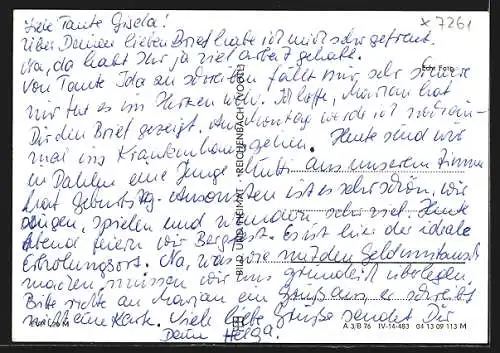 Liebe Tante Gisela!
x 7261
Über Deinen lieben Brief habe ich mich sehr gefreut.
Na, da habt Ihr ja viel Arbeit gehabt.
Echt Foto
Von Tante Ida zu schreiben fällt mir sehr schwer
mir tut es im Herzen weh. Ich hoffe, Marian hat
Dir den Brief gezeigt. Am Montag werde ich noch ein-
mal ins Krankenhaus gehen. Heute sind wir
in Dahlen eine Junge aus unserem Zimmer
hat Geburtstag. Ansonsten ist es sehr schön, wir
singen, spielen und wandern sehr viel. Heute
Abend feiern wir Bergfest. Es ist hier der ideale
Erholungsort. Na, was wir mit den Geldumtausch
machen, müssen wir uns gründlich überlegen.
Bitte richte an Marian ein Gruß aus, er schreibt
nicht eine Karte. Viele liebe Grüße sendet Dir
Deine Helga.
BILD UND HEIMAT · REICHENBACH (VOGTL)
A 3/B 76 IV-14-483 04 13 09 113 M